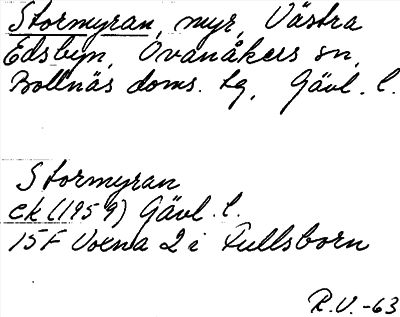 Stormyran, myr, Västra
Edsbyn, Ovanåkers sn,
Bollnäs doms. tg, Gävl. l.
Stormyran
ek (1959) Gävl. l.
15F Voxna 2 i Fullsborn
R.V. -63